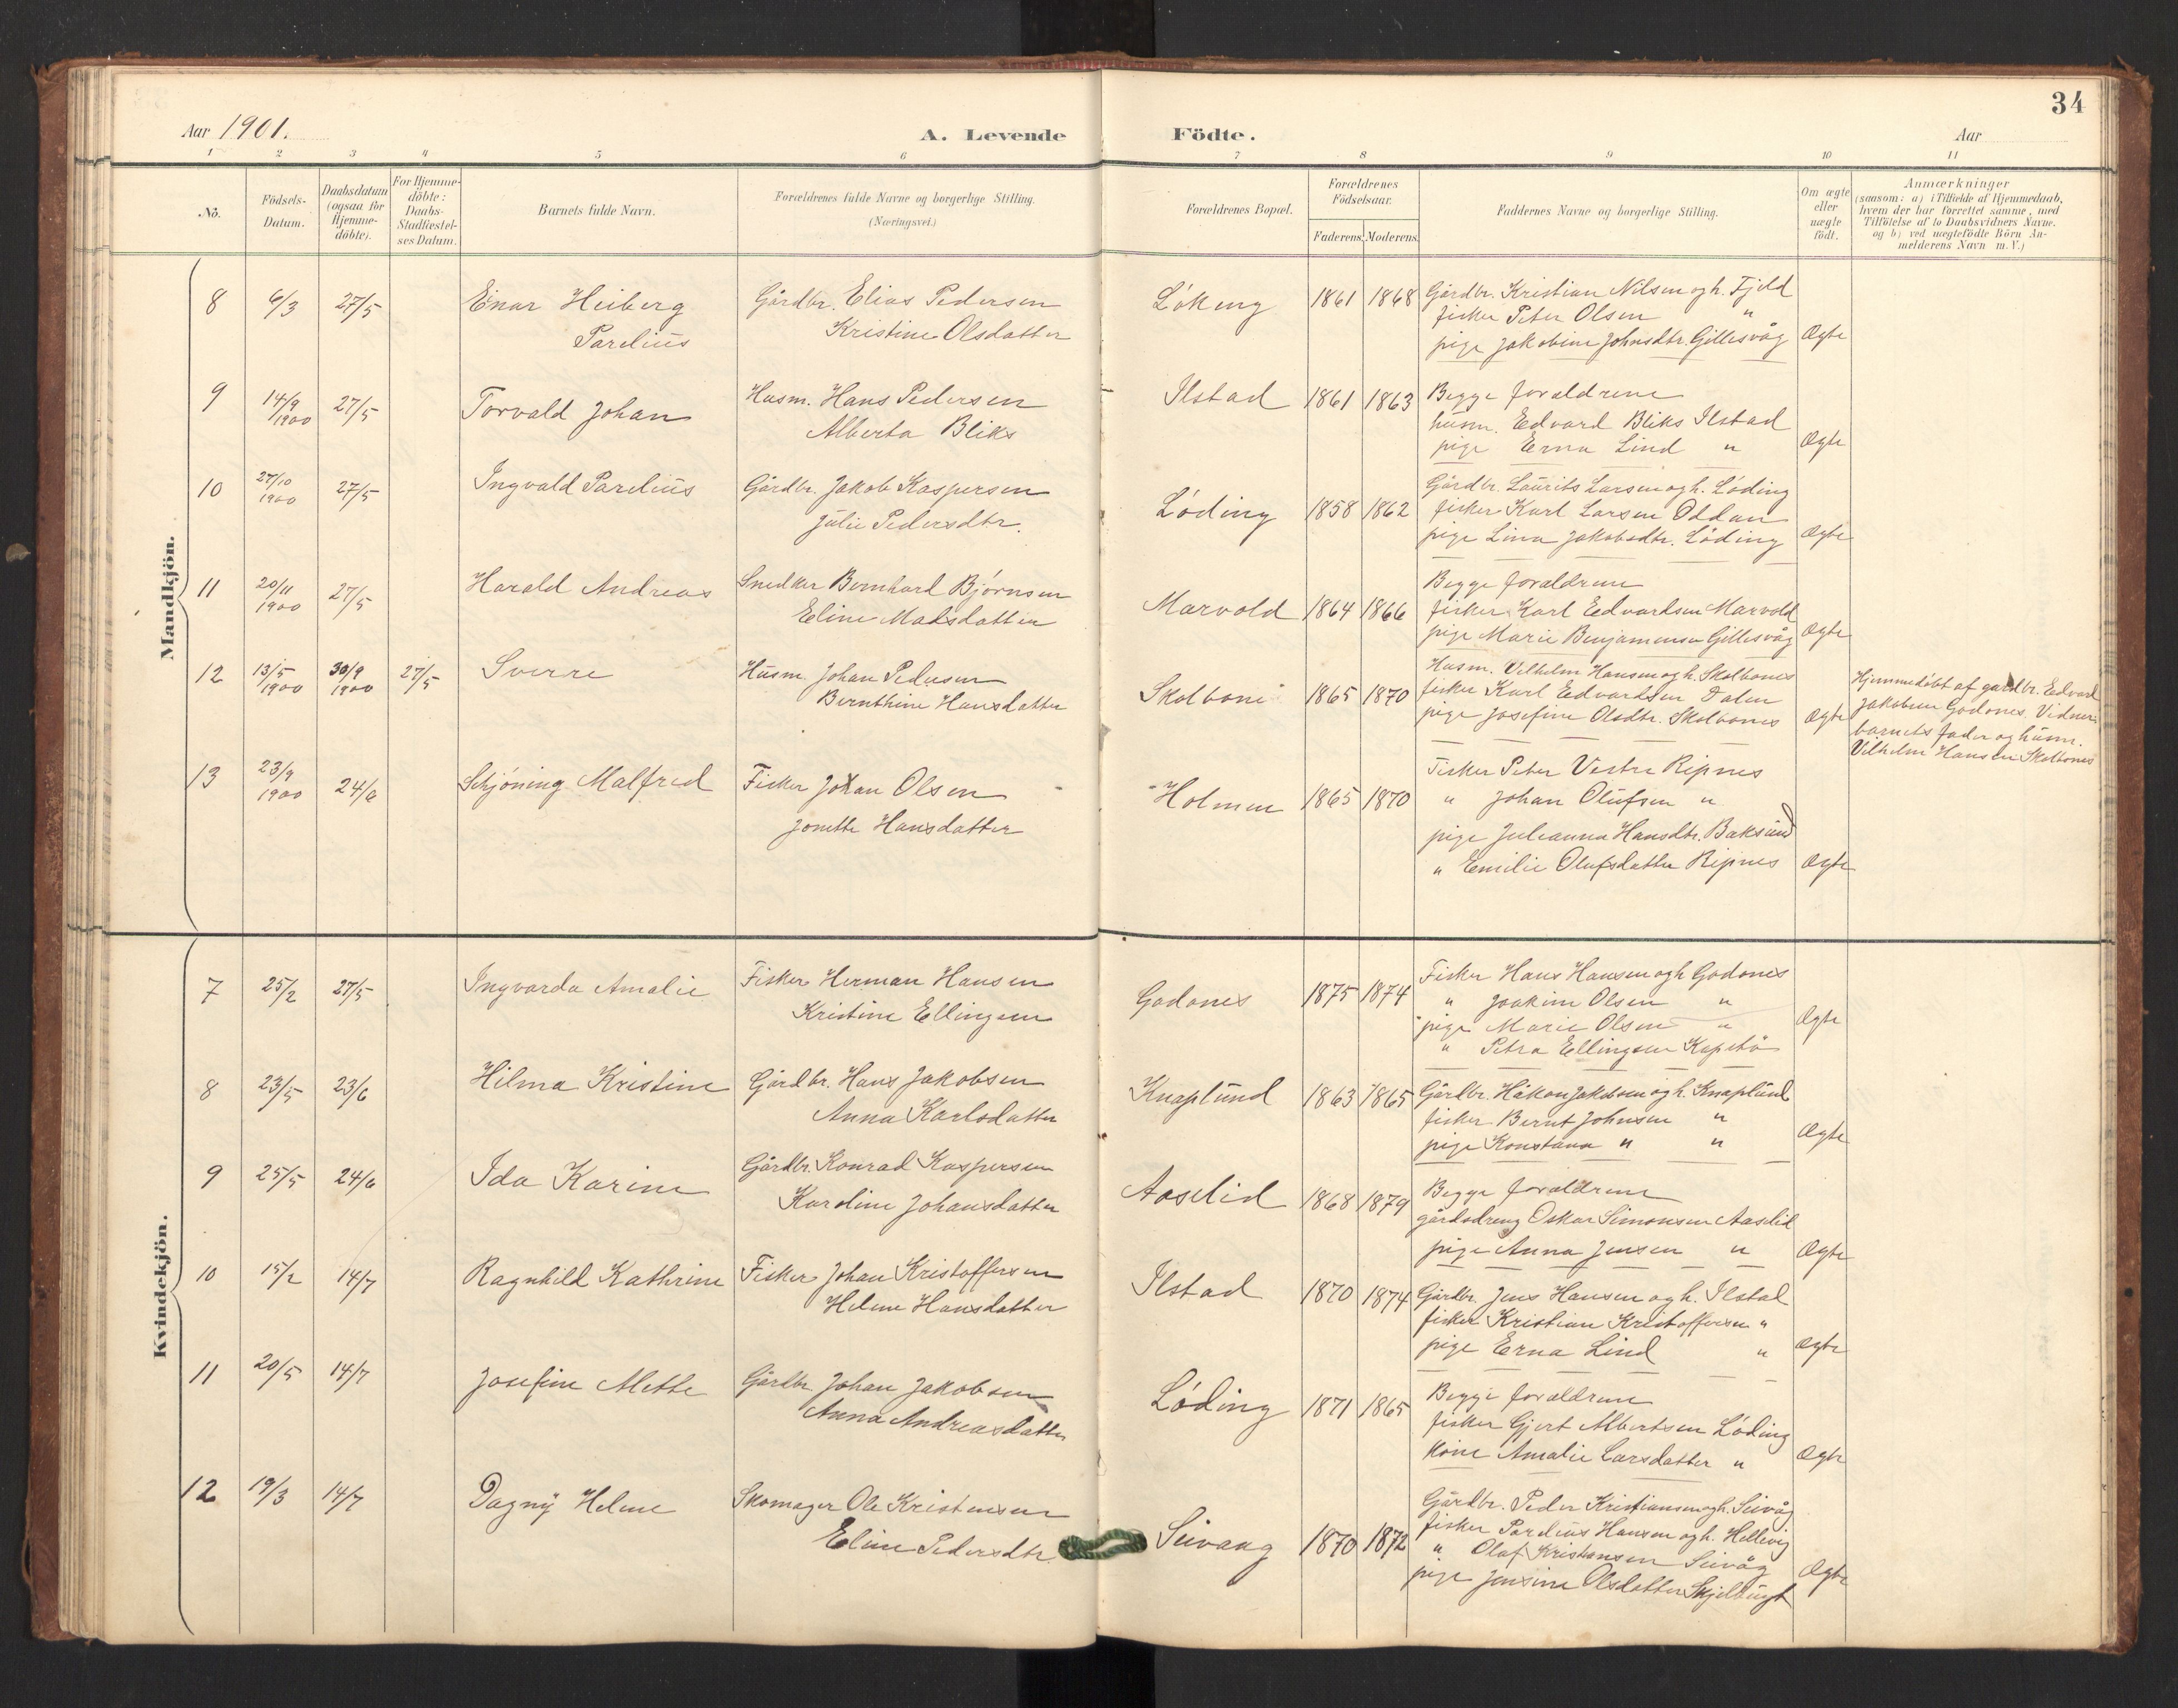 34
Aar 1901.
A. Levende Födte.
Aar
1 2 3 4 5 6 7 8 9 10 11
No.
Födsels-Datum.
Daabsdatum (ogsaa for Hjemme-döbte).
For Hjemme-döbte: Daabs-Stadfæstel-ses Datum.
Barnets fulde Navn.
Forældrenes fulde Navne og borgerlige Stilling.
(Næringsvei.)
Forældrenes Bopæl.
Forældrenes Födselsaar.
Faderens. Moderens.
Faddernes Navne og borgerlige Stilling.
Om ægte eller uægte födt.
Anmærkninger
(saasom: a) i Tilfælde af Hjemmedaab,
hvem der har forrettet samme, med
Tilföielse af to Daabsvidners Navne.
og b) ved uægtefödte Börn An-
melderens Navn m. V.)
Mandkjön.
8 6/3 27/5 Einar Heiberg Gårdbr. Elias Pedersen Løkeng 1861 1868 Gårdbr. Kristian Nilsen og h. Fjeld
Parelius Kristine Olsdatter fisker Peter Olsen "
pige Jakobine Johnsdtr. Gillesvåg Ægte
9 14/9 1900 27/5 Torvald Johan Husm. Hans Pedersen Ilstad 1861 1863 Begge forældrene
Alberta Bliks husm. Edvard Bliks Ilstad
pige Erna Lind " Ægte
10 27/10 1900 27/5 Ingvald Parelius Gårdbr. Jakob Kaspersen Løding 1858 1862 Gårdbr. Laurits Larsen og h. Løding
Julie Pedersdtr. fisker Karl Larsen Oddan
pige Lina Jakobsdtr. Løding Ægte
11 20/11 1900 27/5 Harald Andreas Snedker Bernhard Bjørnsen Marvold 1864 1866 Begge forældrene
Eline Matsdatter fisker Karl Edvardsen Marvold
pige Marie Benjaminsen Gillesvåg Ægte
12 13/5 1900 30/9 1900 27/5 Sverre Husm. Johan Pedersen Skolbones 1865 1870 Husm. Vilhelm Hansen og h. Skolbones
Bernthine Hansdatter fisker Karl Edvardsen Dalen
pige Josefine Olsdtr. Skolbones Ægte
Hjemmedøbt af gardbr. Edvard
Jakobsen Godones. Vidner:
barnets fader og husm.
Vilhelm Hansen Skolbones
13 23/9 1900 24/6 Schjøning Malfred Fisker Johan Olsen Holmen 1865 1870 Fisker Peter Vestre Ripnes
Jonette Hansdatter " Johan Olufsen "
pige Juleanna Hansdtr. Baksund
" Emilie Olufsdatter Ripnes Ægte
Kvindekjön.
7 25/2 27/5 Ingvarda Amalie Fisker Herman Hansen Godones 1875 1874 Fisker Hans Hansen og h. Godones
Kristine Ellingsen " Joakim Olsen "
pige Marie Olsen " Ægte
" Petra Ellingsen
8 23/5 23/6 Hilma Kristine Gårdbr. Hans Jakobsen Knaplund 1863 1865 Gårdbr. Håkon Jakobsen og h. Knaplund
Anna Karlsdatter fisker Bernt Johnsen "
pige Konstana " " Ægte
9 25/5 24/6 Ida Karine Gårdbr. Konrad Kaspersen Aaselid 1868 1879 Begge forældrene
Karoline Johansdatter gårdsdreng Oskar Simonsen Aaselid
pige Anna Jensen " Ægte
10 15/2 14/7 Ragnhild Kathrine Fisker Johan Kristoffersen Ilstad 1870 1874 Gårdbr. Jens Hansen og h. Ilstad
Helene Hansdatter fisker Kristian Kristoffersen "
pige Erna Lind " Ægte
11 20/5 14/7 Josefine Mette Gårdbr. Johan Jakobsen Løding 1871 1865 Begge forældrene
Anna Andreasdatter fisker Gjert Albertsen Løding
kone Amalie Larsdatter " Ægte
12 19/3 14/7 Dagny Helene Skomager Ole Kristensen Seivaag 1870 1872 Gårdbr. Peder Kristiansen og h. Seivåg
Eline Pedersdtr. fisker Parelius Hansen og h. Hellevig
" Olaf Kristiansen Seivåg
pige Jensine Olsdatter Skjelbugt Ægte